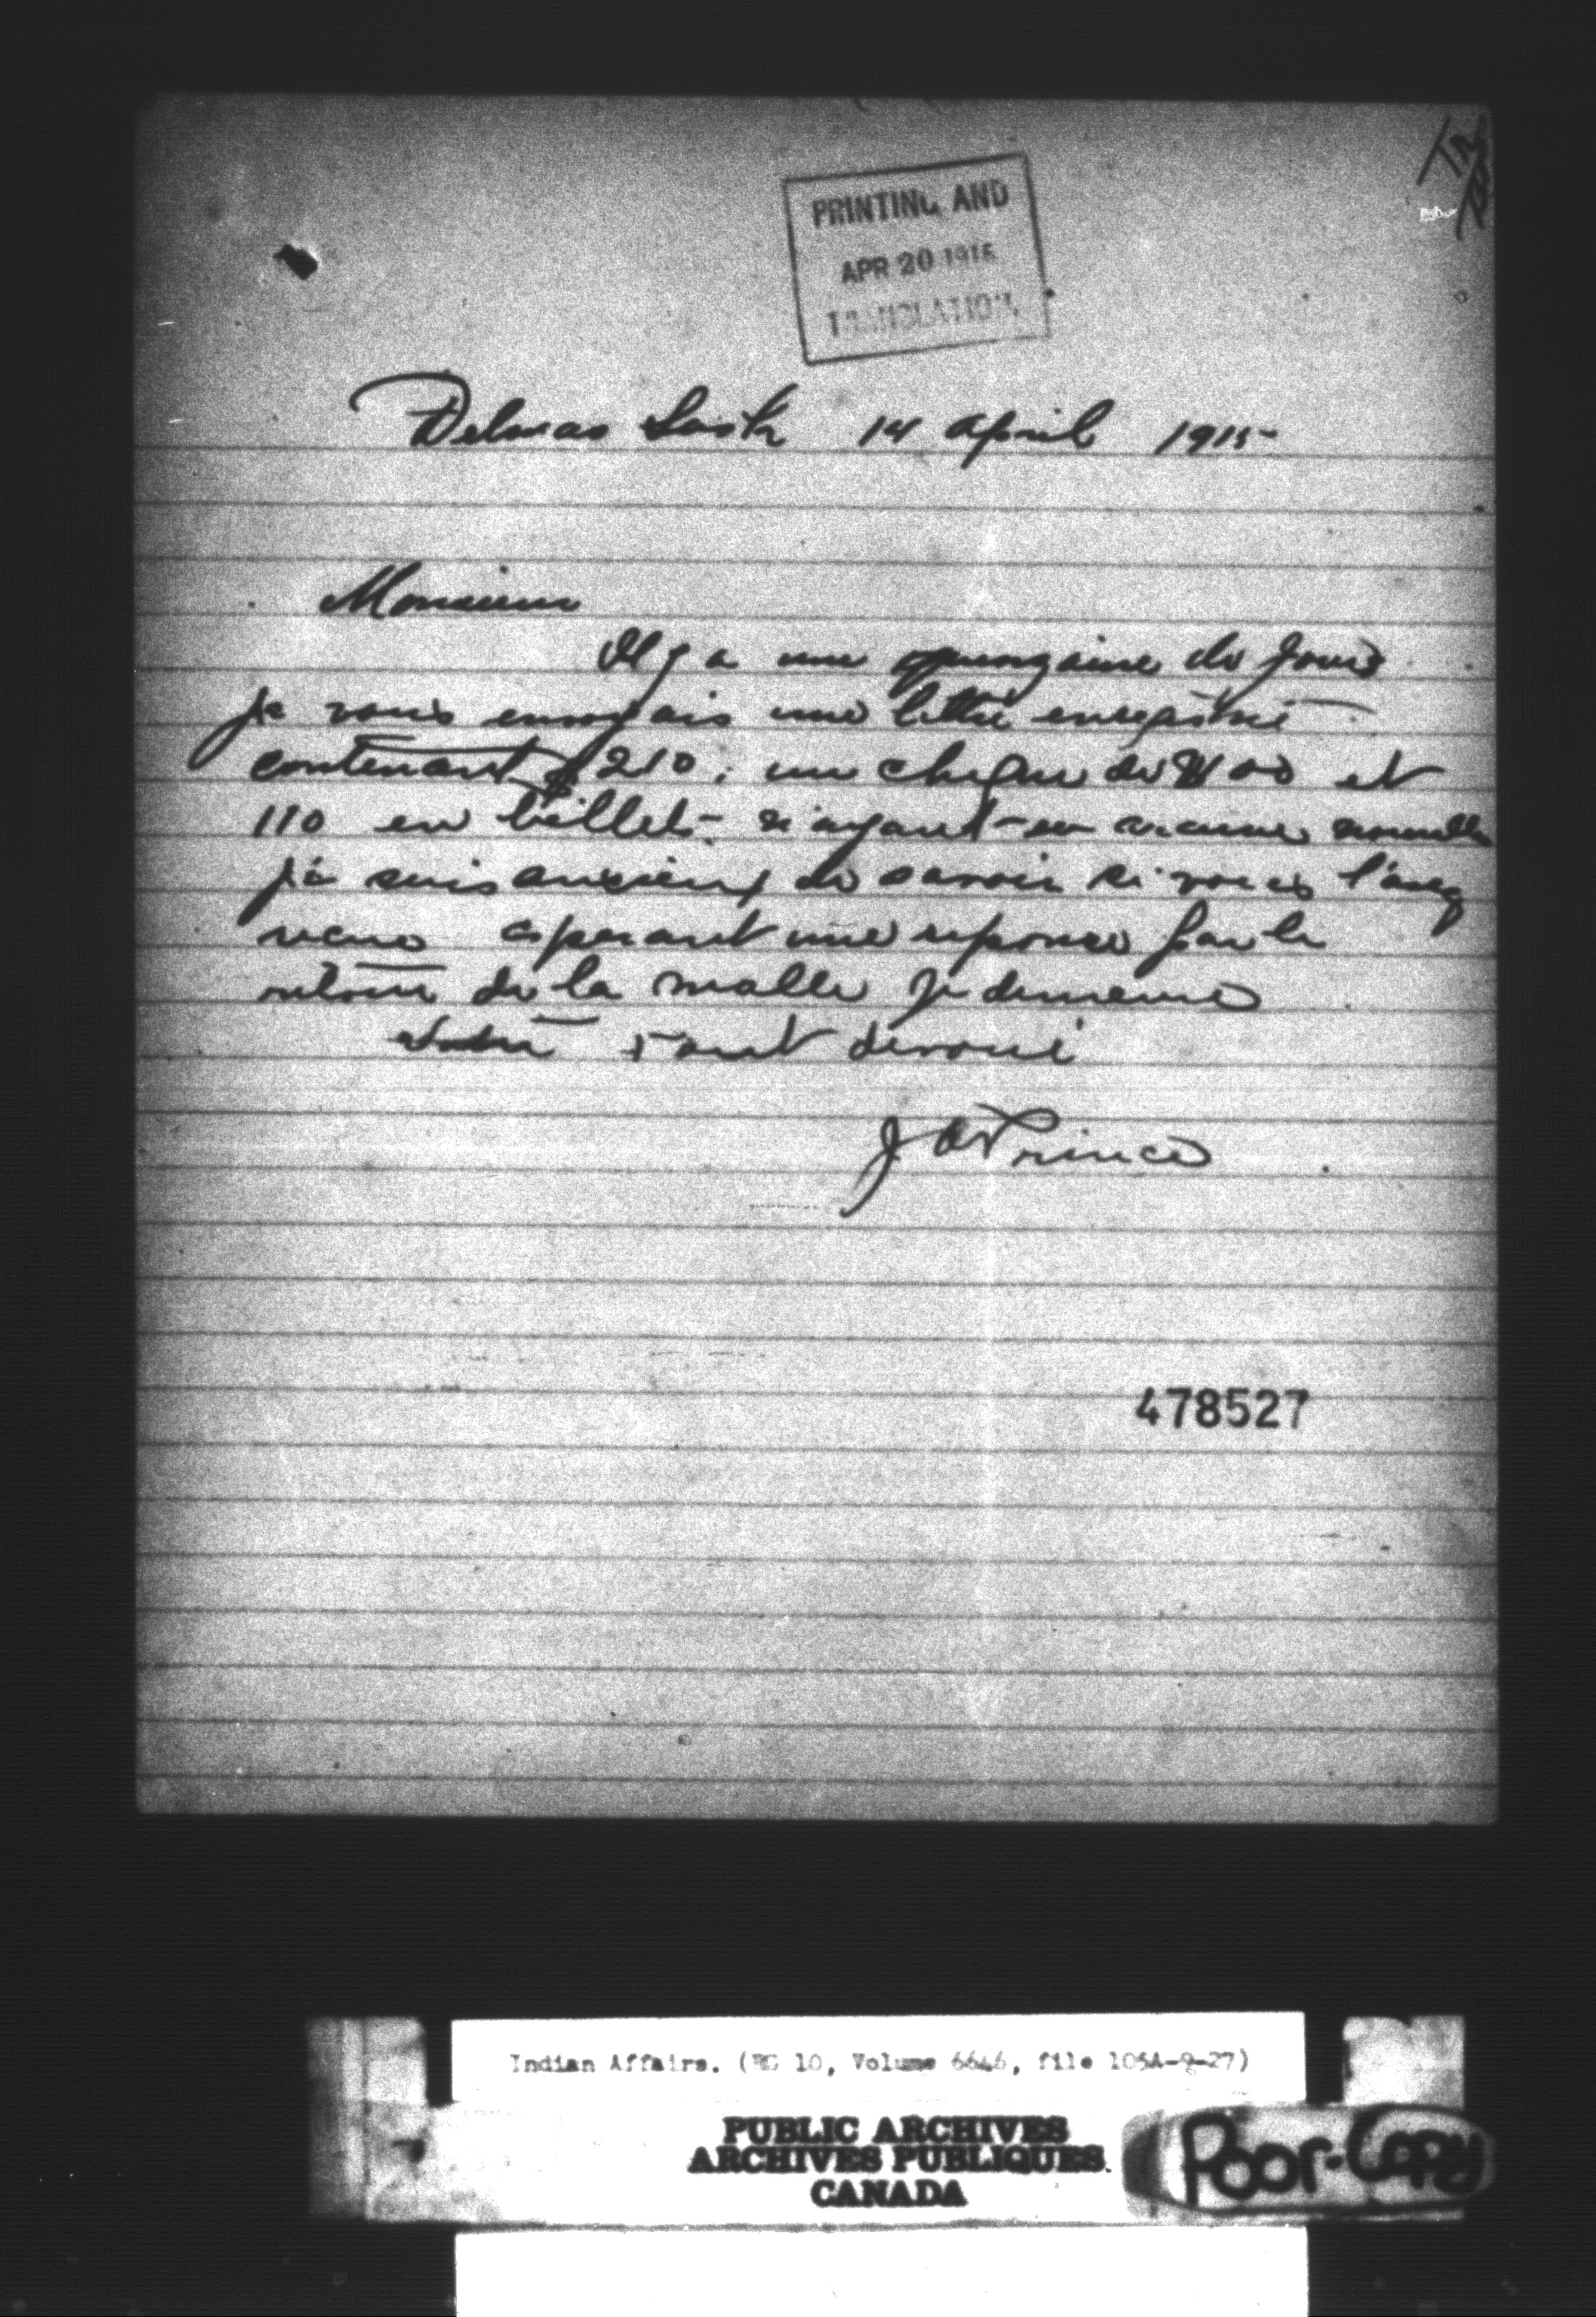 PRINTING AND
APR 20 1915
TRANSLATION
Delmas Sask 14 April 1915
Monsieur
Il y a une quinzaine de jours
je vous envoyais une lettre enregistré
contenant $210. un cheque de $100 et
110 en billets n'ayant eu aucune nouvelle
je suis anxieux de savoir si vous l'avez
recue esperant une reponse par le
retour de la malle je demeure
votre tout dévoué
J A Prince
478527
Indian Affairs. (RG 10, Volume 6646, file 105A-9-27)
PUBLIC ARCHIVES
ARCHIVES PUBLIQUES
CANADA
Poor-Copy